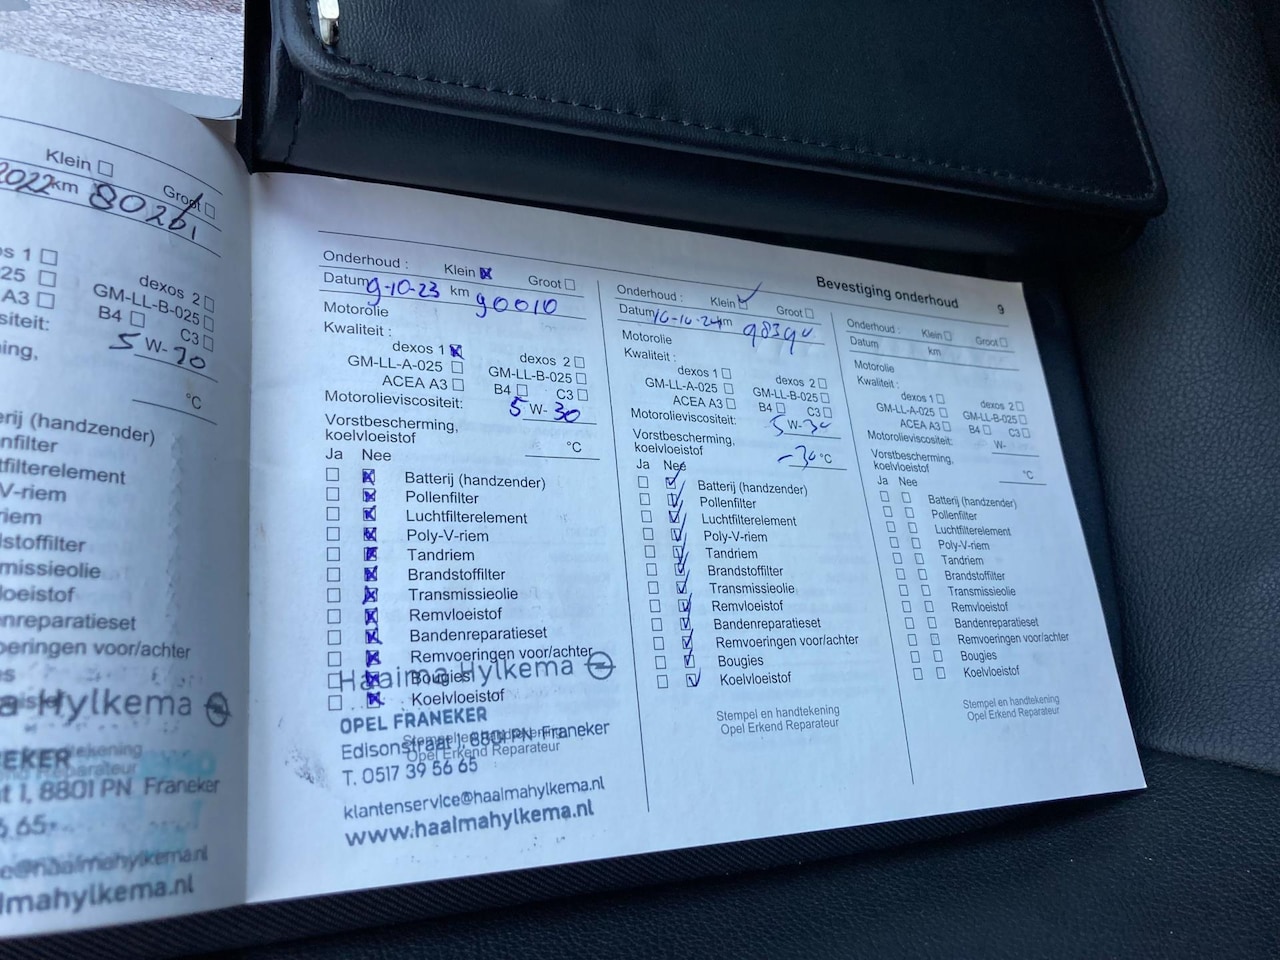 Klein Groot
2022 km 80261
os 1 dexos 2
025 GM-LL-B-025
A3 B4 C3
siteit: 5 W-
ing,
°C
erij (handzender)
nfilter
tfilterelement
V-riem
riem
dstoffilter
missieolie
loeistof
enreparatieset
oeringen voor/achter
es
a Hylkema
EKER
at 1, 8801 PN Franeker
6 65
ce@haalmahylkema.nl
lmahylkema.nl
Bevestiging onderhoud 9
Onderhoud : Klein Groot
Datum 9-10-23 km 90010
Motorolie
Kwaliteit :
dexos 1 dexos 2
GM-LL-A-025 GM-LL-B-025
ACEA A3 B4 C3
Motorolieviscositeit: 5 W- 30
Vorstbescherming,
koelvloeistof °C
Ja Nee
Batterij (handzender)
Pollenfilter
Luchtfilterelement
Poly-V-riem
Tandriem
Brandstoffilter
Transmissieolie
Remvloeistof
Bandenreparatieset
Remvoeringen voor/achter
Bougies
Koelvloeistof
Haaima Hylkema
OPEL FRANEKER
Stempel en handtekening
Edisonstraat 1, 8801 PN Franeker
Opel Erkend Reparateur
T. 0517 39 56 65
klantenservice@haalmahylkema.nl
www.haalmahylkema.nl
Onderhoud : Klein Groot
Datum km
Motorolie
Kwaliteit :
dexos 1 dexos 2
GM-LL-A-025 GM-LL-B-025
ACEA A3 B4 C3
Motorolieviscositeit: 5 W- 30
Vorstbescherming,
koelvloeistof -30 °C
Ja Nee
Batterij (handzender)
Pollenfilter
Luchtfilterelement
Poly-V-riem
Tandriem
Brandstoffilter
Transmissieolie
Remvloeistof
Bandenreparatieset
Remvoeringen voor/achter
Bougies
Koelvloeistof
Stempel en handtekening
Opel Erkend Reparateur
Onderhoud : Klein Groot
Datum km
Motorolie
Kwaliteit :
dexos 1 dexos 2
GM-LL-A-025 GM-LL-B-025
ACEA A3 B4 C3
Motorolieviscositeit: W-
Vorstbescherming,
koelvloeistof °C
Ja Nee
Batterij (handzender)
Pollenfilter
Luchtfilterelement
Poly-V-riem
Tandriem
Brandstoffilter
Transmissieolie
Remvloeistof
Bandenreparatieset
Remvoeringen voor/achter
Bougies
Koelvloeistof
Stempel en handtekening
Opel Erkend Reparateur